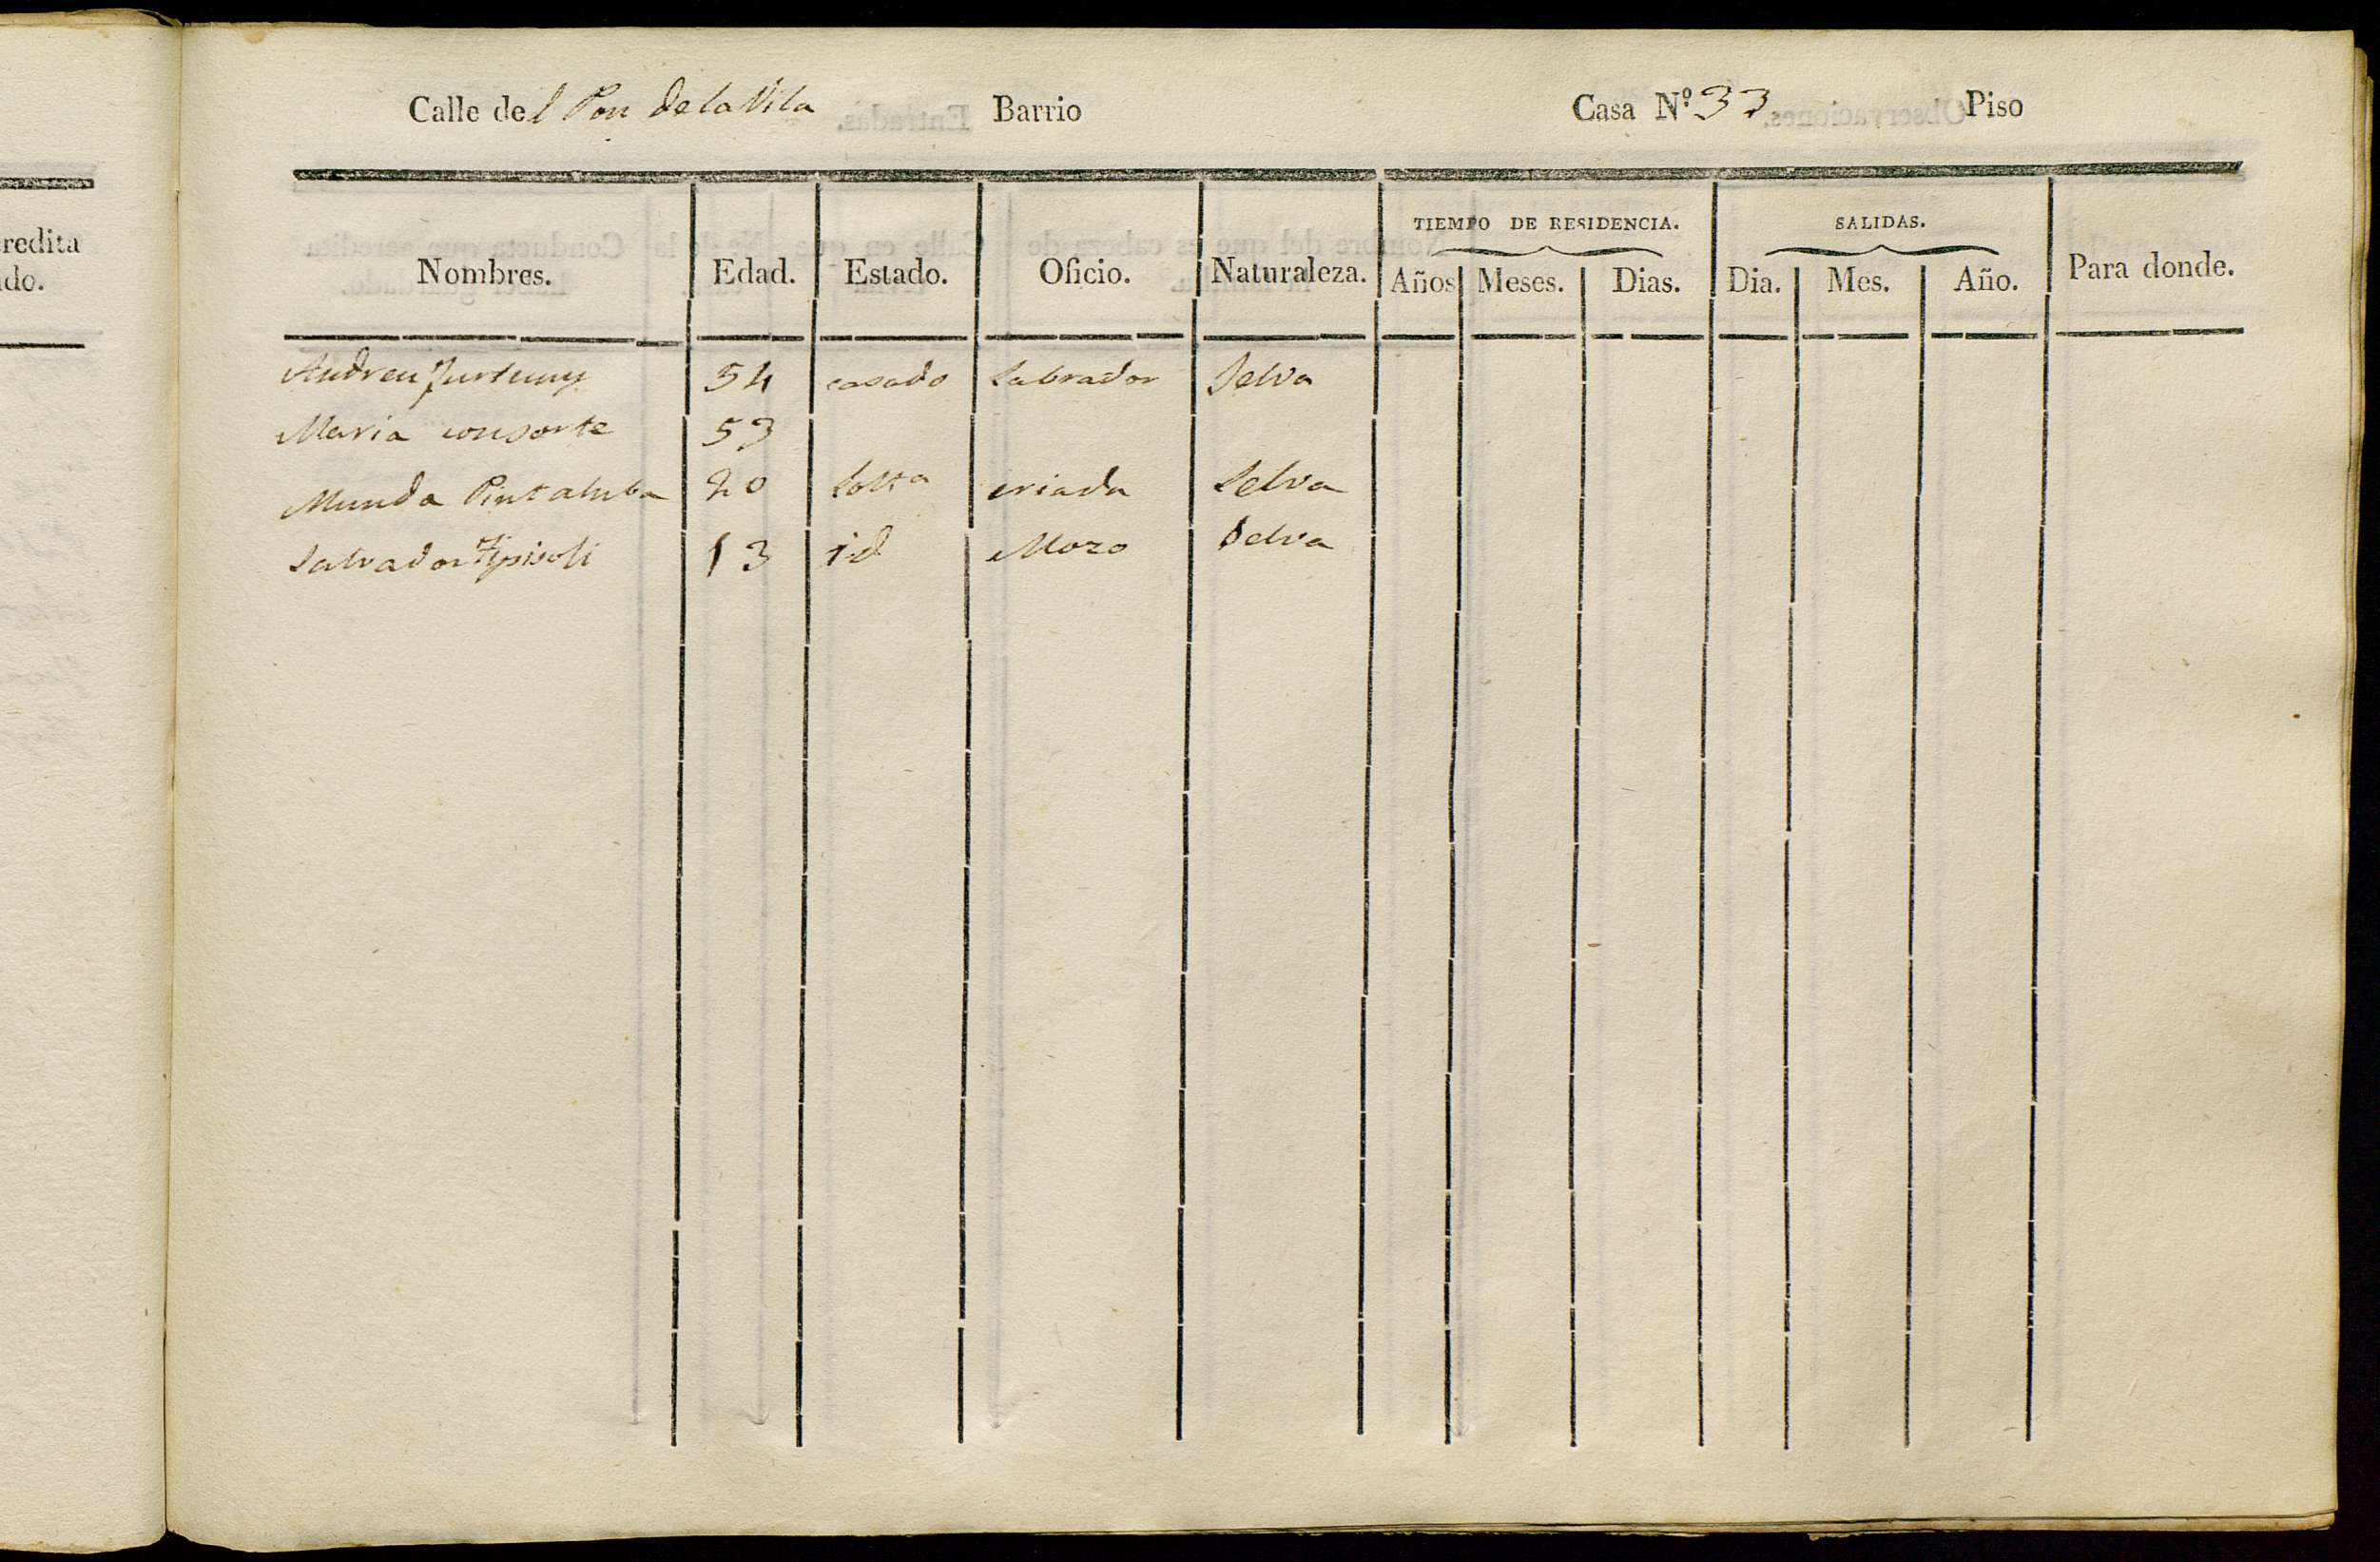 redita
do.
Calle del Pou de la Vila Barrio Casa Nº 33 Piso
Nombres. Edad. Estado. Oficio. Naturaleza. TIEMPO DE RESIDENCIA. Años Meses. Dias. SALIDAS. Dia. Mes. Año. Para donde.
Andreu 54 casado Labrador Selva
Maria consorte 53
Munda Pintaluba 20 solta criada Selva
Salvador 13 id Mozo Selva